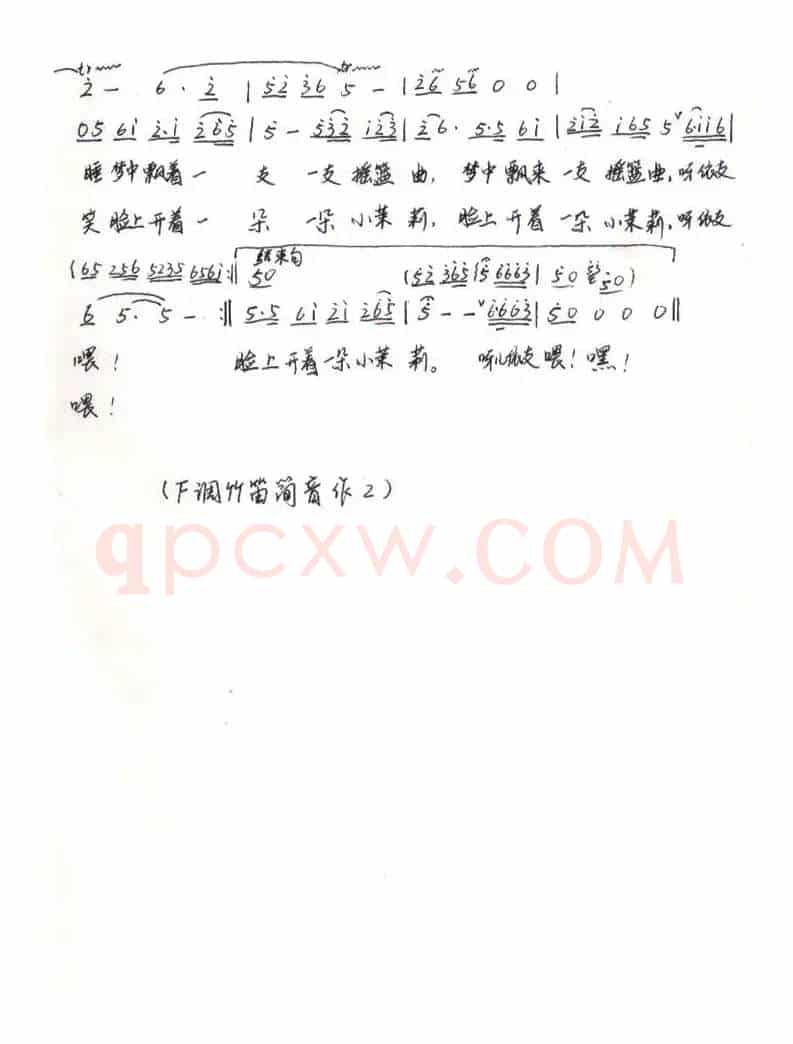 tr tr
2 - 6 · 2 | 52 36 5 - | 26 56 0 0 |
05 61 2·1 265 | 5 - 532 123 | 26· 5·5 61 | 212 165 5 ˅6·116 |
睡梦中飘着一 支 一支 摇篮 曲, 梦中飘来 一支 摇篮曲,听依支
笑脸上开着一 朵 一朵 小茉 莉, 脸上开着 一朵 小茉莉,听依支
结束句
(65 256 5235 6561 :|| 50 (52 365 | 5 6663 | 50 50)
6 5· 5 - :|| 5·5 61 21 265 | 5 - - ˅6·663 | 50 0 0 0 ||
喂! 脸上开着一朵小茉 莉。 听儿依支 喂!嘿!
喂!
(下调竹笛筒音作2)
qpcxw.COM